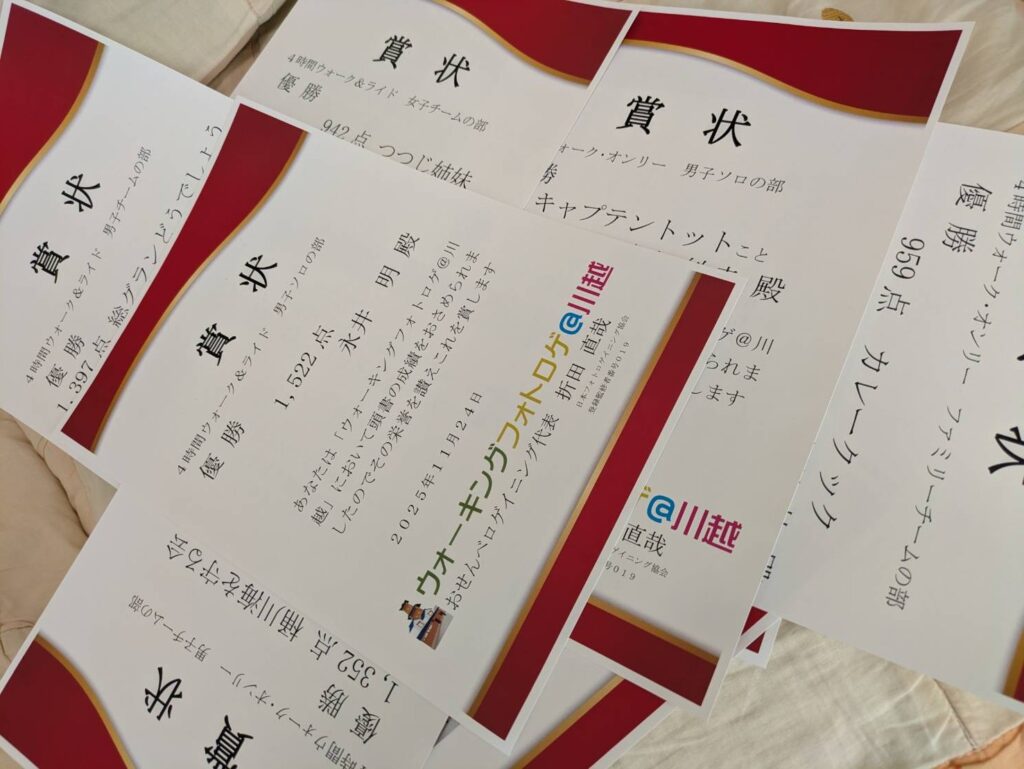 賞 状
4時間ウォーク＆ライド 男子チームの部
優 勝
1,397 点 総グランどうでしょう
賞 状
4時間ウォーク＆ライド 女子チームの部
優 勝
942 点 つつじ姉妹
賞 状
ォーク・オンリー 男子ソロの部
勝
キャプテントットこと
殿
ゲ@川
られま
します
@川越
直哉
イニング協会
号019
状
4時間ウォーク・オンリー ファミリーチームの部
優 勝
959 点 カレークック
賞 状
4時間ウォーク＆ライド 男子ソロの部
優 勝
1,522 点
永井 明 殿
あなたは「ウォーキングフォトロゲ@川
越」において頭書の成績をおさめられま
したのでその栄誉を讃えこれを賞します
2025年11月24日
ウォーキングフォトロゲ@川越
おせんべロゲイニング代表 折田 直哉
日本フォトロゲイニング協会
登録監修者番号019
賞 状
時間ウォーク・オンリー 男子チームの部
優 勝
1,352 点 桶川海を守る会